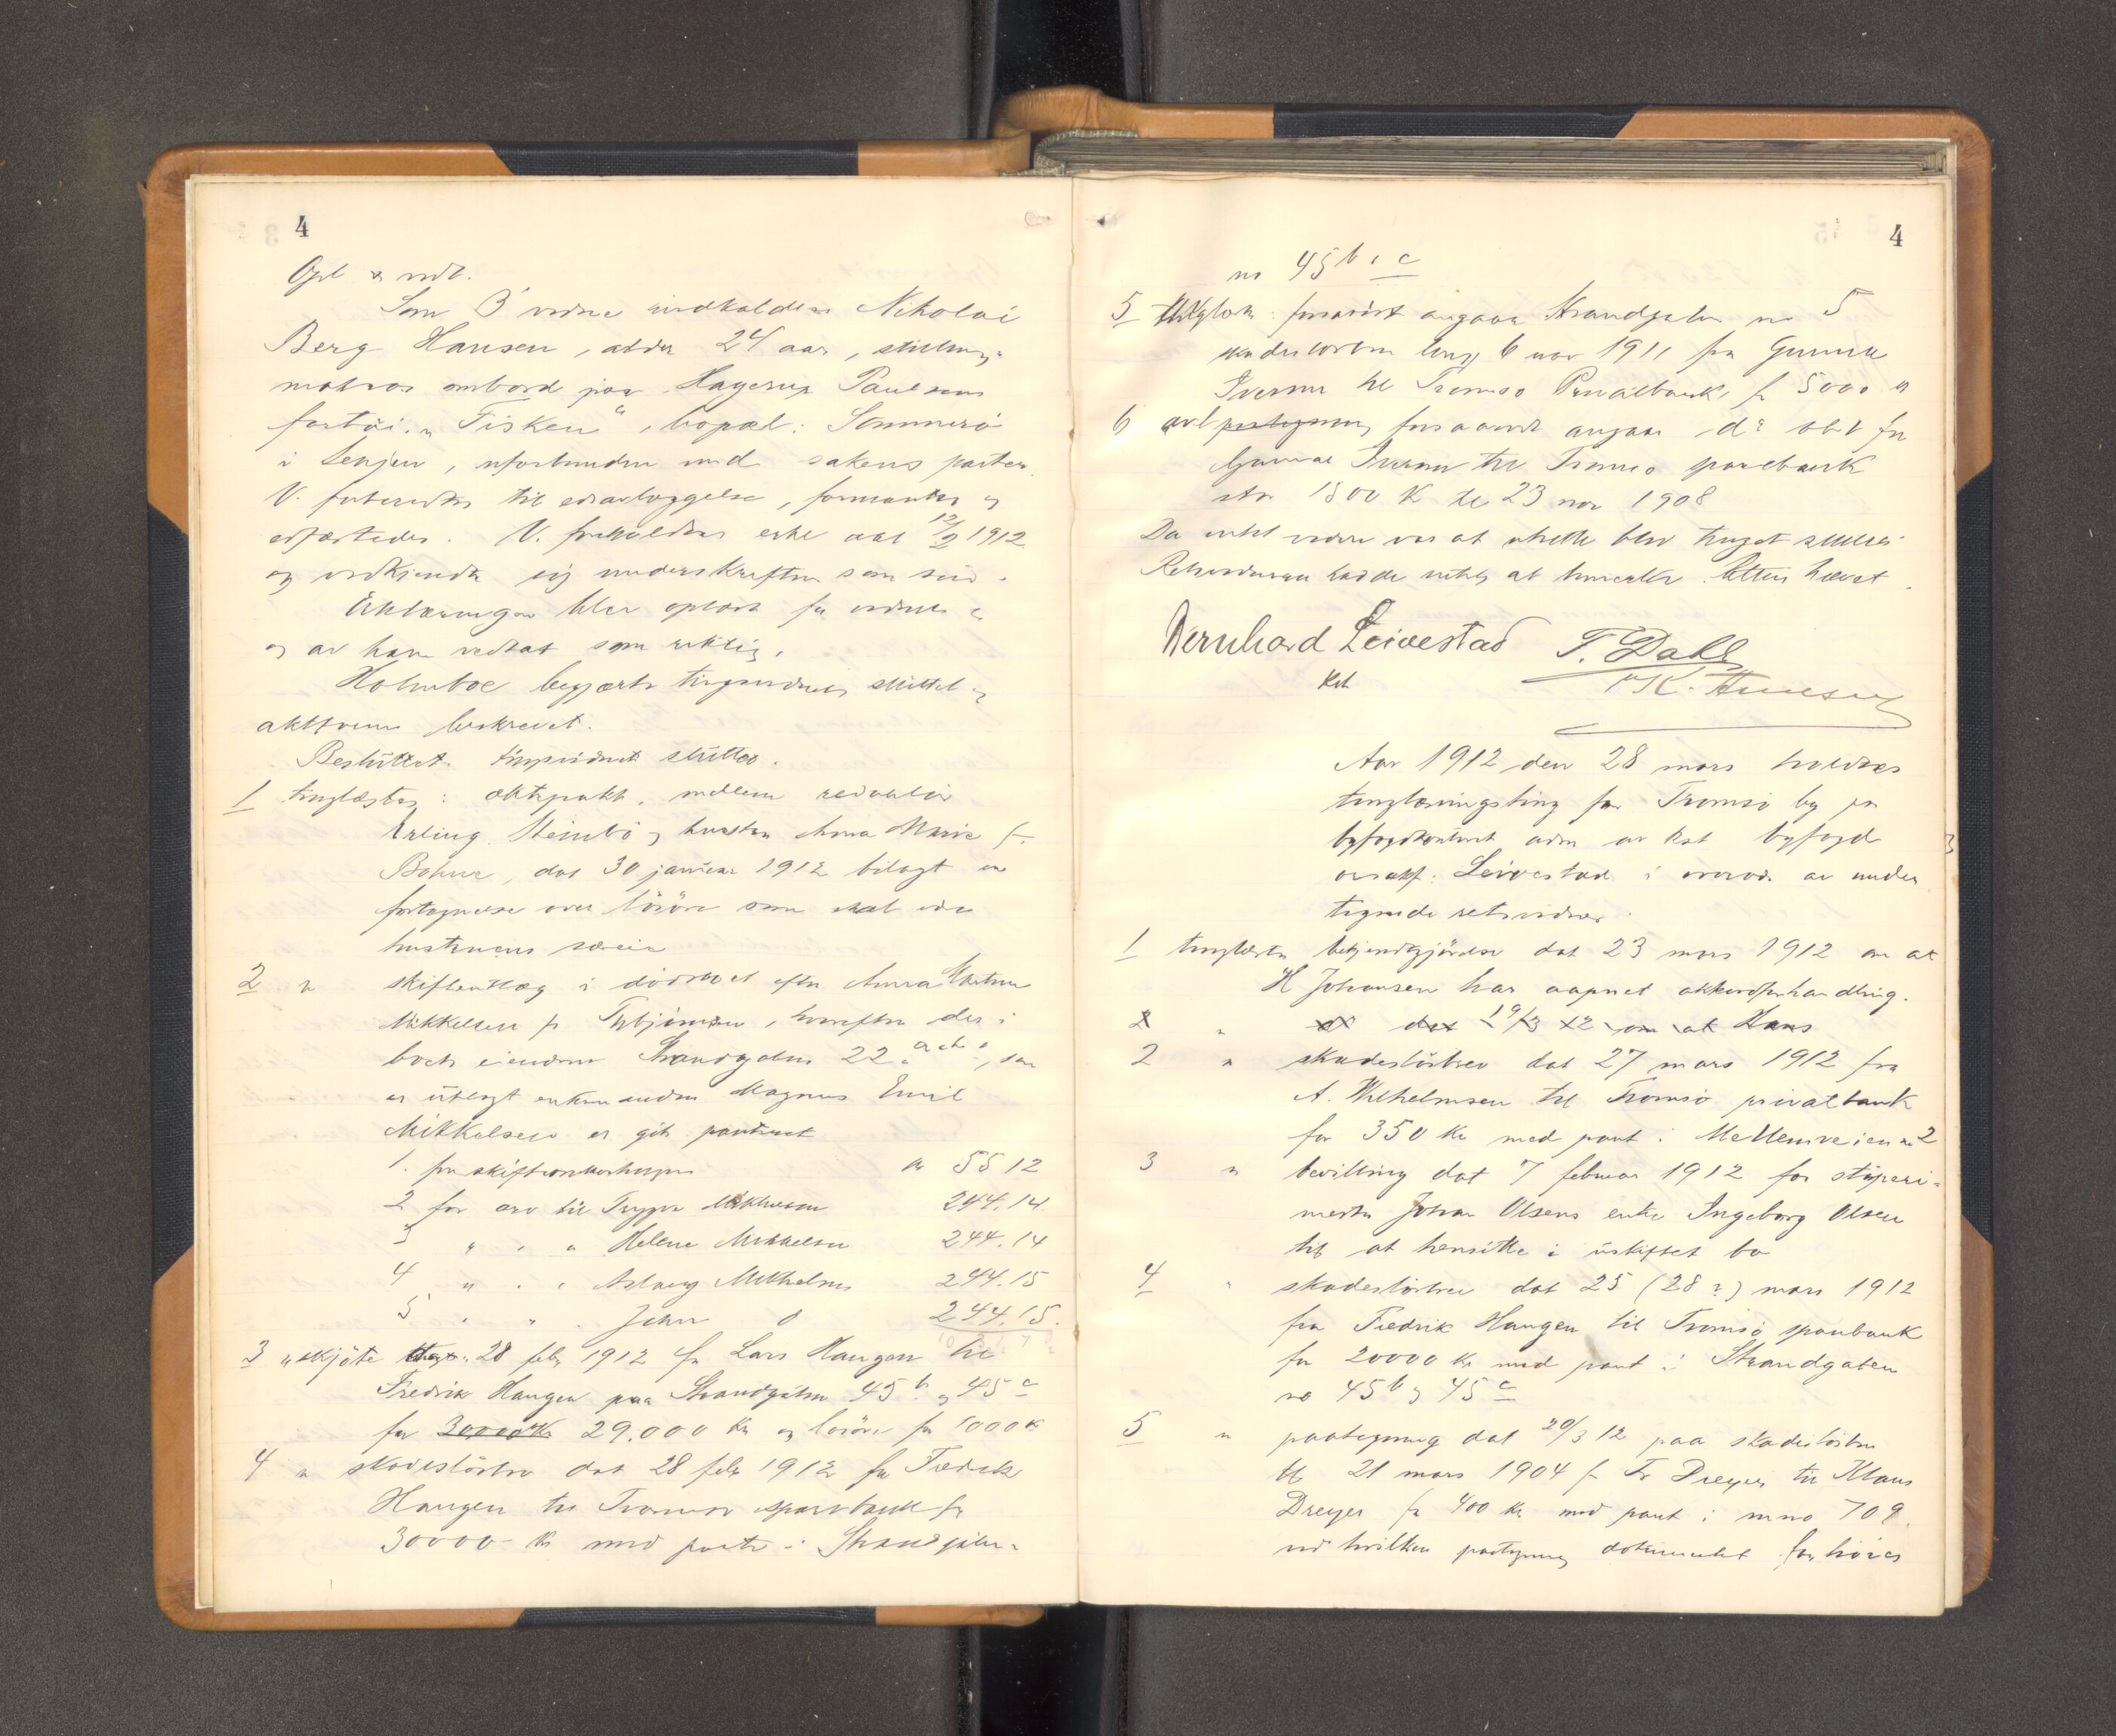 4
Opl & vedt.
Som 3' vidne indkaldtes Nikolai
Berg Hansen, alder 24 aar, stilling:
matros ombord paa Hagerup Paulsens
fartöi "Fisken", bopæl: Sommerö
i Lenjen, uforbunden med sakens parter.
V. forberedtes til edsavlæggelse, formantes og
edfæstedes. V. foreholdtes erkl. dat 12/2 1912
og vedkjendte sig underskriften som sin.
Erklæringen blev oplæst for vidnet
og av ham vedtat som riktig.
Holmboe begjærte tingsvidnet sluttet og
aktform beskrevet.
Besluttet: tingsvidnet sluttes.
1 tinglæstes: ektepakt mellem redaktör
Erling Steinbö og hustru Anna Marie f.
Bohne, dat 30 januar 1912 bilagt en
fortegnelse over lösöre som skal være
hustruens særeie
2 " skifteutlæg i dödsboet efter Anna
Mikkelsen f. Thbjörnsen, hvorefter der i
boets eiendom Strandgaten 22 , som
er utlagt enkemanden Magnus Emil
Mikkelsen er git panteret
1. for skifteomkostninger kr 55 12
2 for arv til Trygve Mikkelsen 244.14
3 " " " Helene Mikkelsen 244.14
4 " " " Aslaug Mikkelsen 244.15
5 " " " John d 244.15.
3 " skjöte 28 feb 1912 fra Lars Haugen til
Fredrik Haugen paa Strandgaten 45 b og 45 c
for 30000 Kr 29.000 Kr og lösöre for 1000 K
4 " skadeslösbrev dat 28 feb 1912 fra Fredrik
Haugen til Tromsö sparebank for
30000 kr med pant i Strandgaten
4
no 45 b & c
5 forsaavidt angaar Strandgaten no 5
skadeslösbrev tingl 6 nov 1911 fra Gunnar
Iversen til Tromsö Privatbank for 5000 kr
6 avl paategning forsaavidt angaar do obl fra
Gunnar Iversen til Tromsö sparebank
stor 1800 K tl 23 nov 1908
Da intet videre var at utrette blev tinget sluttet.
Retsvidnerne hadde intet at bemerke. Retten hævet.
Bernhard Leivestad T. Dahl
kst K. Hansen
Aar 1912 den 28 mars holdtes
tinglæsningsting for Tromsö by paa
byfogdkontoret adm av kst byfogd
oversakf. Leivestad i overvær av under
tegnede retsvidner.
1 tinglæstes bekjendtgjörelse dat 23 mars 1912 om at
H Johansen har aapnet akkordforhandling.
2 " dat 19/3 12 om at Hans
2 " skadeslösbrev dat 27 mars 1912 fra
A. Wilhelmsen til Tromsö privatbank
for 350 Kr med pant i Mellemveien no 2
3 " bevilling dat 7 februar 1912 for stuperi-
mester Johan Olsens enke Ingeborg Olsen
til at hensitte i uskiftet bo
4 " skadeslösbrev dat 25 (28?) mars 1912
fra Fredrik Haugen til Tromsö sparebank
for 20000 kr med pant i Strandgaten
no 45 b og 45 c
5 " paategning dat 20/3 12 paa skadeslösbrev
tl 21 mars 1904 fra Fr Dreyer til Klaus
Dreyer for 400 kr med pant i mno 709.
ved hvilken paategning dokumentet